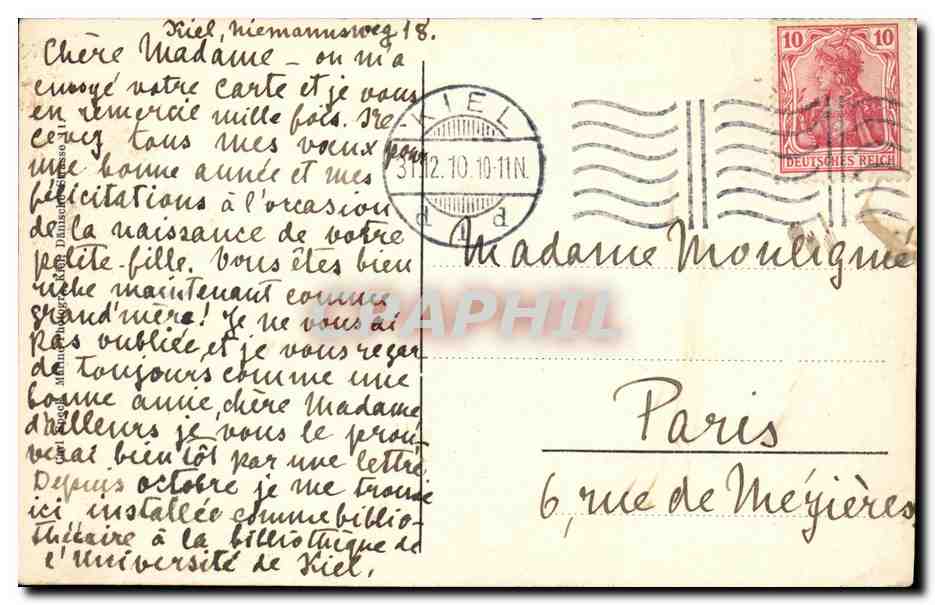 Kiel, Niemannsweg 18.
Chère Madame – on m'a
envoyé votre carte et je vous
en remercie mille fois. Re
cevez tous mes vœux pour
une bonne année et mes
félicitations à l'occasion
de la naissance de votre
petite-fille. Vous êtes bien
riche maintenant comme
grand'mère! Je ne vous ai
pas oubliée, et je vous regar
de toujours comme une
bonne amie, chère Madame
d'ailleurs je vous le prou-
verai bientôt par une lettre
Depuis octobre je me trouve
ici installée comme biblio-
thécaire à la bibliothèque de
l'Université de Kiel.
KIEL
31.12.10.10-11N.
10 10
DEUTSCHES REICH
Madame Mouligné
Paris
6, rue de Mézières
CPAPHIL
Dänische Strasse